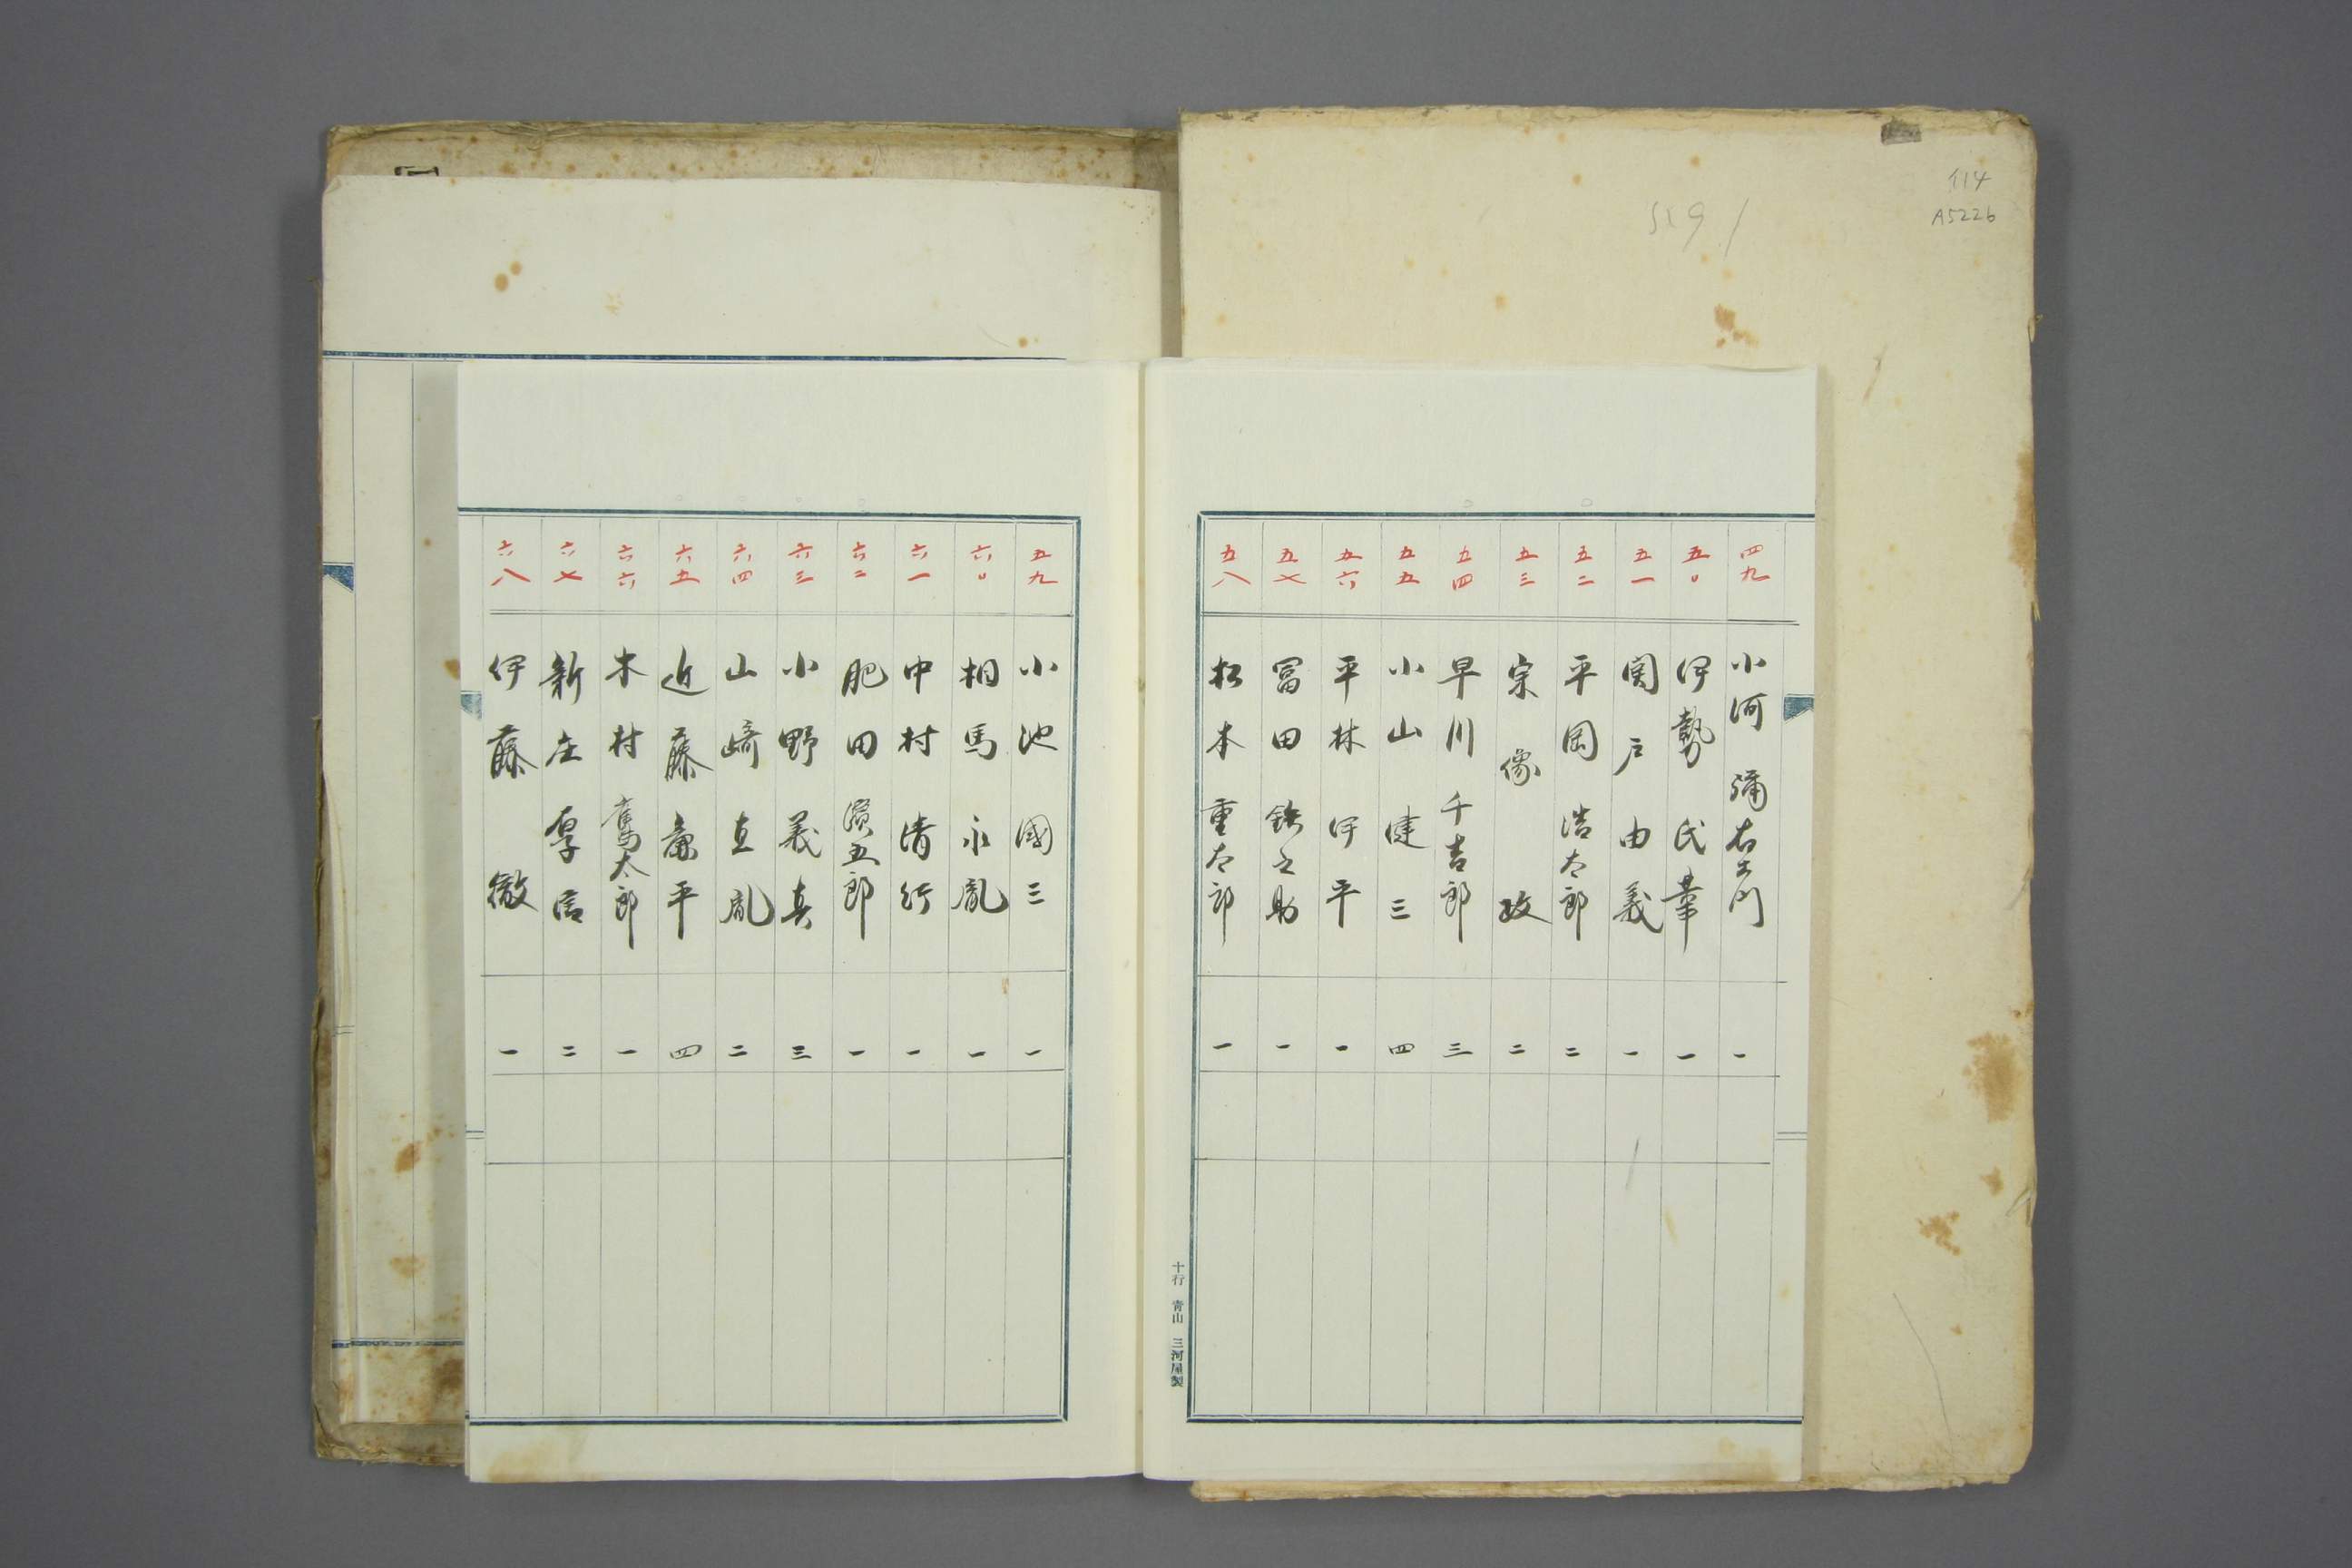 イ14
A5226
四九 小河 彌右エ門 一
五〇 伊勢 氏華 一
五一 関戸 由義 一
五二 平岡 浩太郎 二
五三 宗像 政 二
五四 早川 千吉郎 三
五五 小山 健三 四
五六 平林 伊平 一
五七 冨田 鉄之助 一
五八 松本 重太郎 一
十行 青山 三河屋製
五九 小池 國三 一
六〇 相馬 永胤 一
六一 中村 清行 一
六二 肥田 濱五郎 一
六三 小野 義真 三
六四 山崎 直胤 二
六五 近藤 廉平 四
六六 木村 騫太郎 一
六七 新庄 厚信 二
六八 伊藤 徹 一